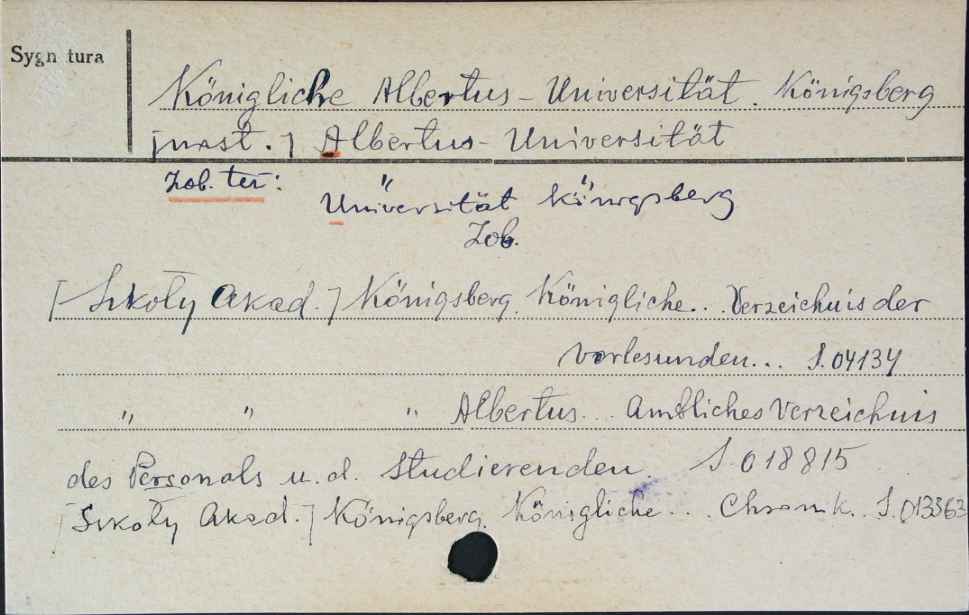 Sygn tura
Königliche Albertus-Universität. Königsberg
[nast.] Albertus-Universität
Zob. też:
" "
Universität Königsberg
Zob.
[Szkoły Akad.] Königsberg. Königliche... Verzeichnis der
Vorlesunden... S.04134
" " " Albertus... Amtliches Verzeichnis
des Personals u. d. Studierenden. S.018815
[Szkoły Akad.] Königsberg. Königliche... Chronik. S.013363